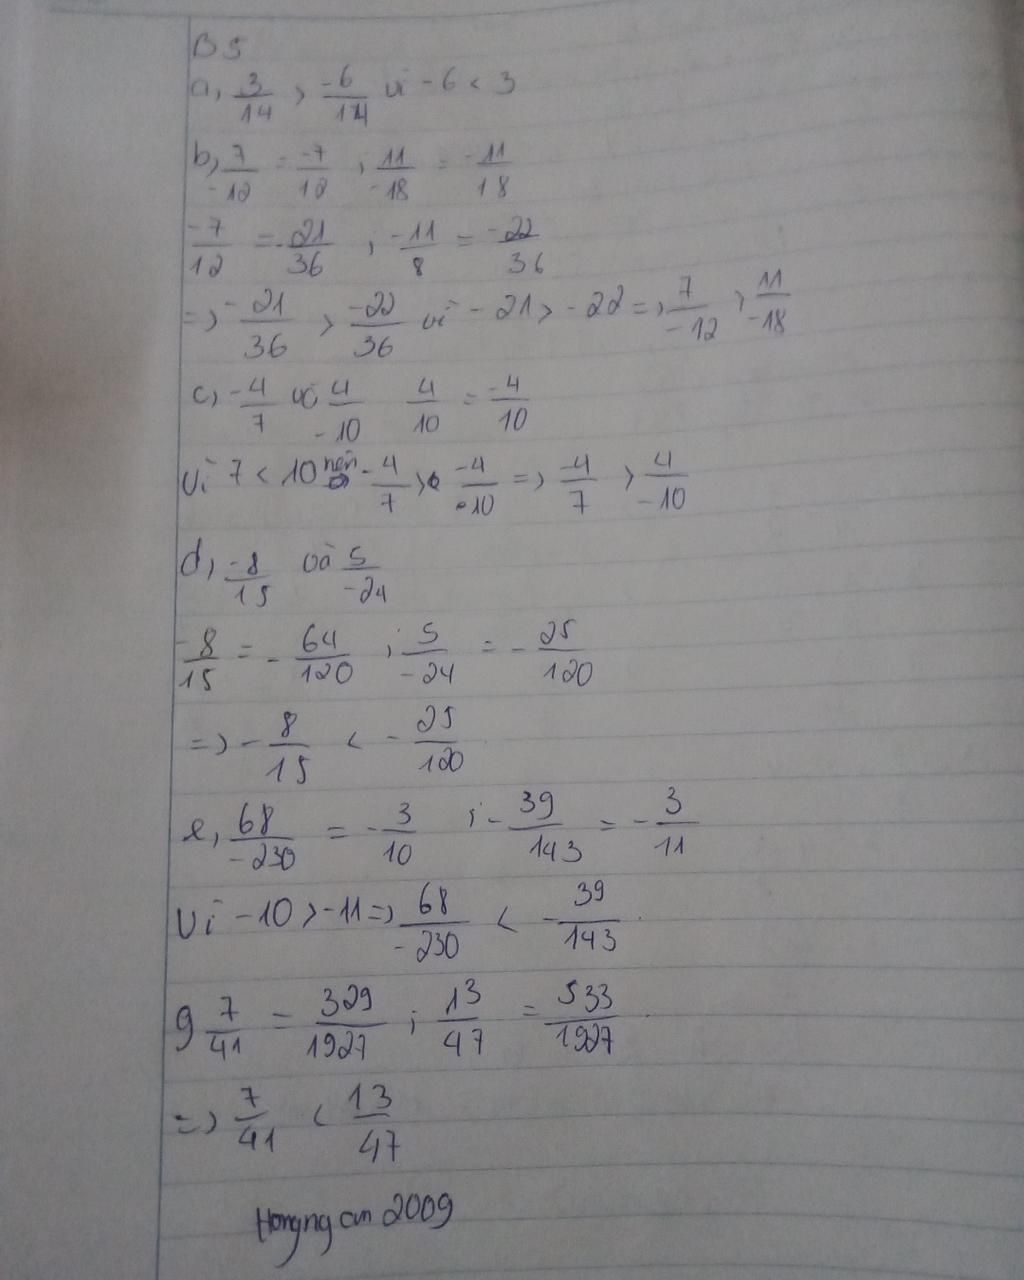 B5
a, 3/14 > -6/14 vì -6 < 3
b, 7/-12 = -7/12 ; 11/-18 = -11/18
-7/12 = -21/36 ; -11/8 = -22/36
=> -21/36 > -22/36 vì -21 > -22 => 7/-12 > 11/-18
c, -4/7 và 4/-10 4/10 = -4/10
Vì 7 < 10 nên -4/7 > -4/10 => -4/7 > 4/-10
d, -8/15 và 5/-24
-8/15 = -64/120 ; 5/-24 = -25/120
=> -8/15 < -25/120
e, 68/-230 = -3/10 ; -39/143 = -3/11
Vì -10 > -11 => 68/-230 < -39/143
g 7/41 = 329/1927 ; 13/47 = 533/1927
=> 7/41 < 13/47
Hongngan 2009